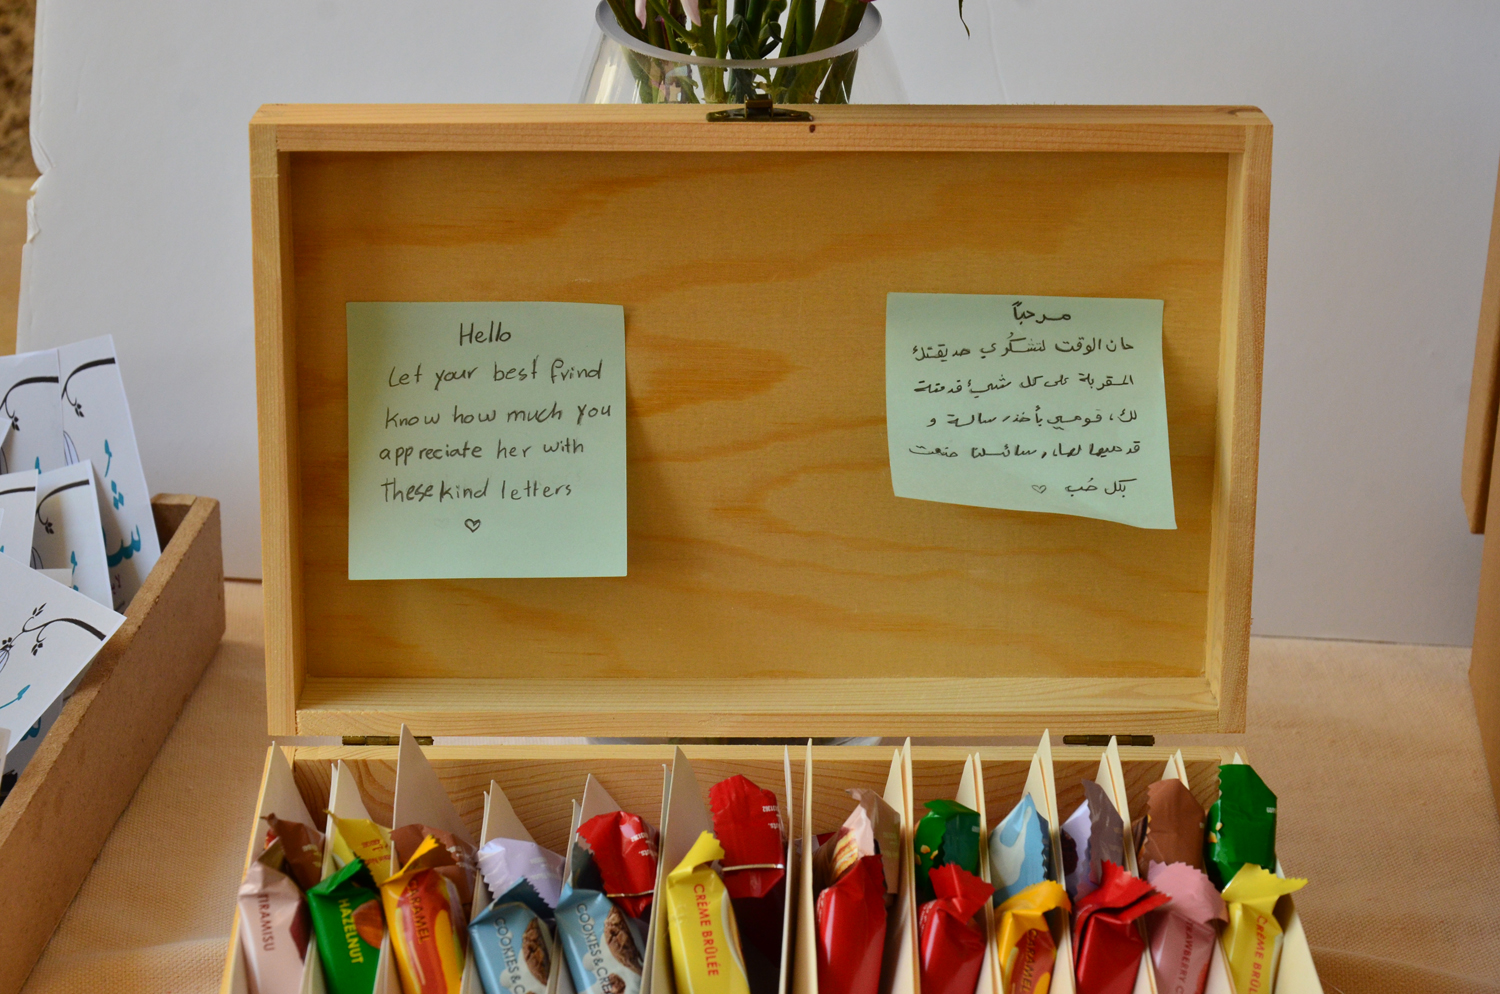 Hello
Let your best frind
know how much you
appreciate her with
these kind letters
♡
مرحباً
حان الوقت لتشكُري صديقتك
المقربة على كل شيء قدمتة
لك، قومي بأخذ رسالة و
قدميها لها، رسائلنا صنعت
بكل حُب ♡
TIRAMISU
HAZELNUT
CARAMEL
COOKIES & C
COOKIES & CRE
CRÈME BRÛLÉE
CARAMEL
STRAWBERRY C
CRÈME BRÛL